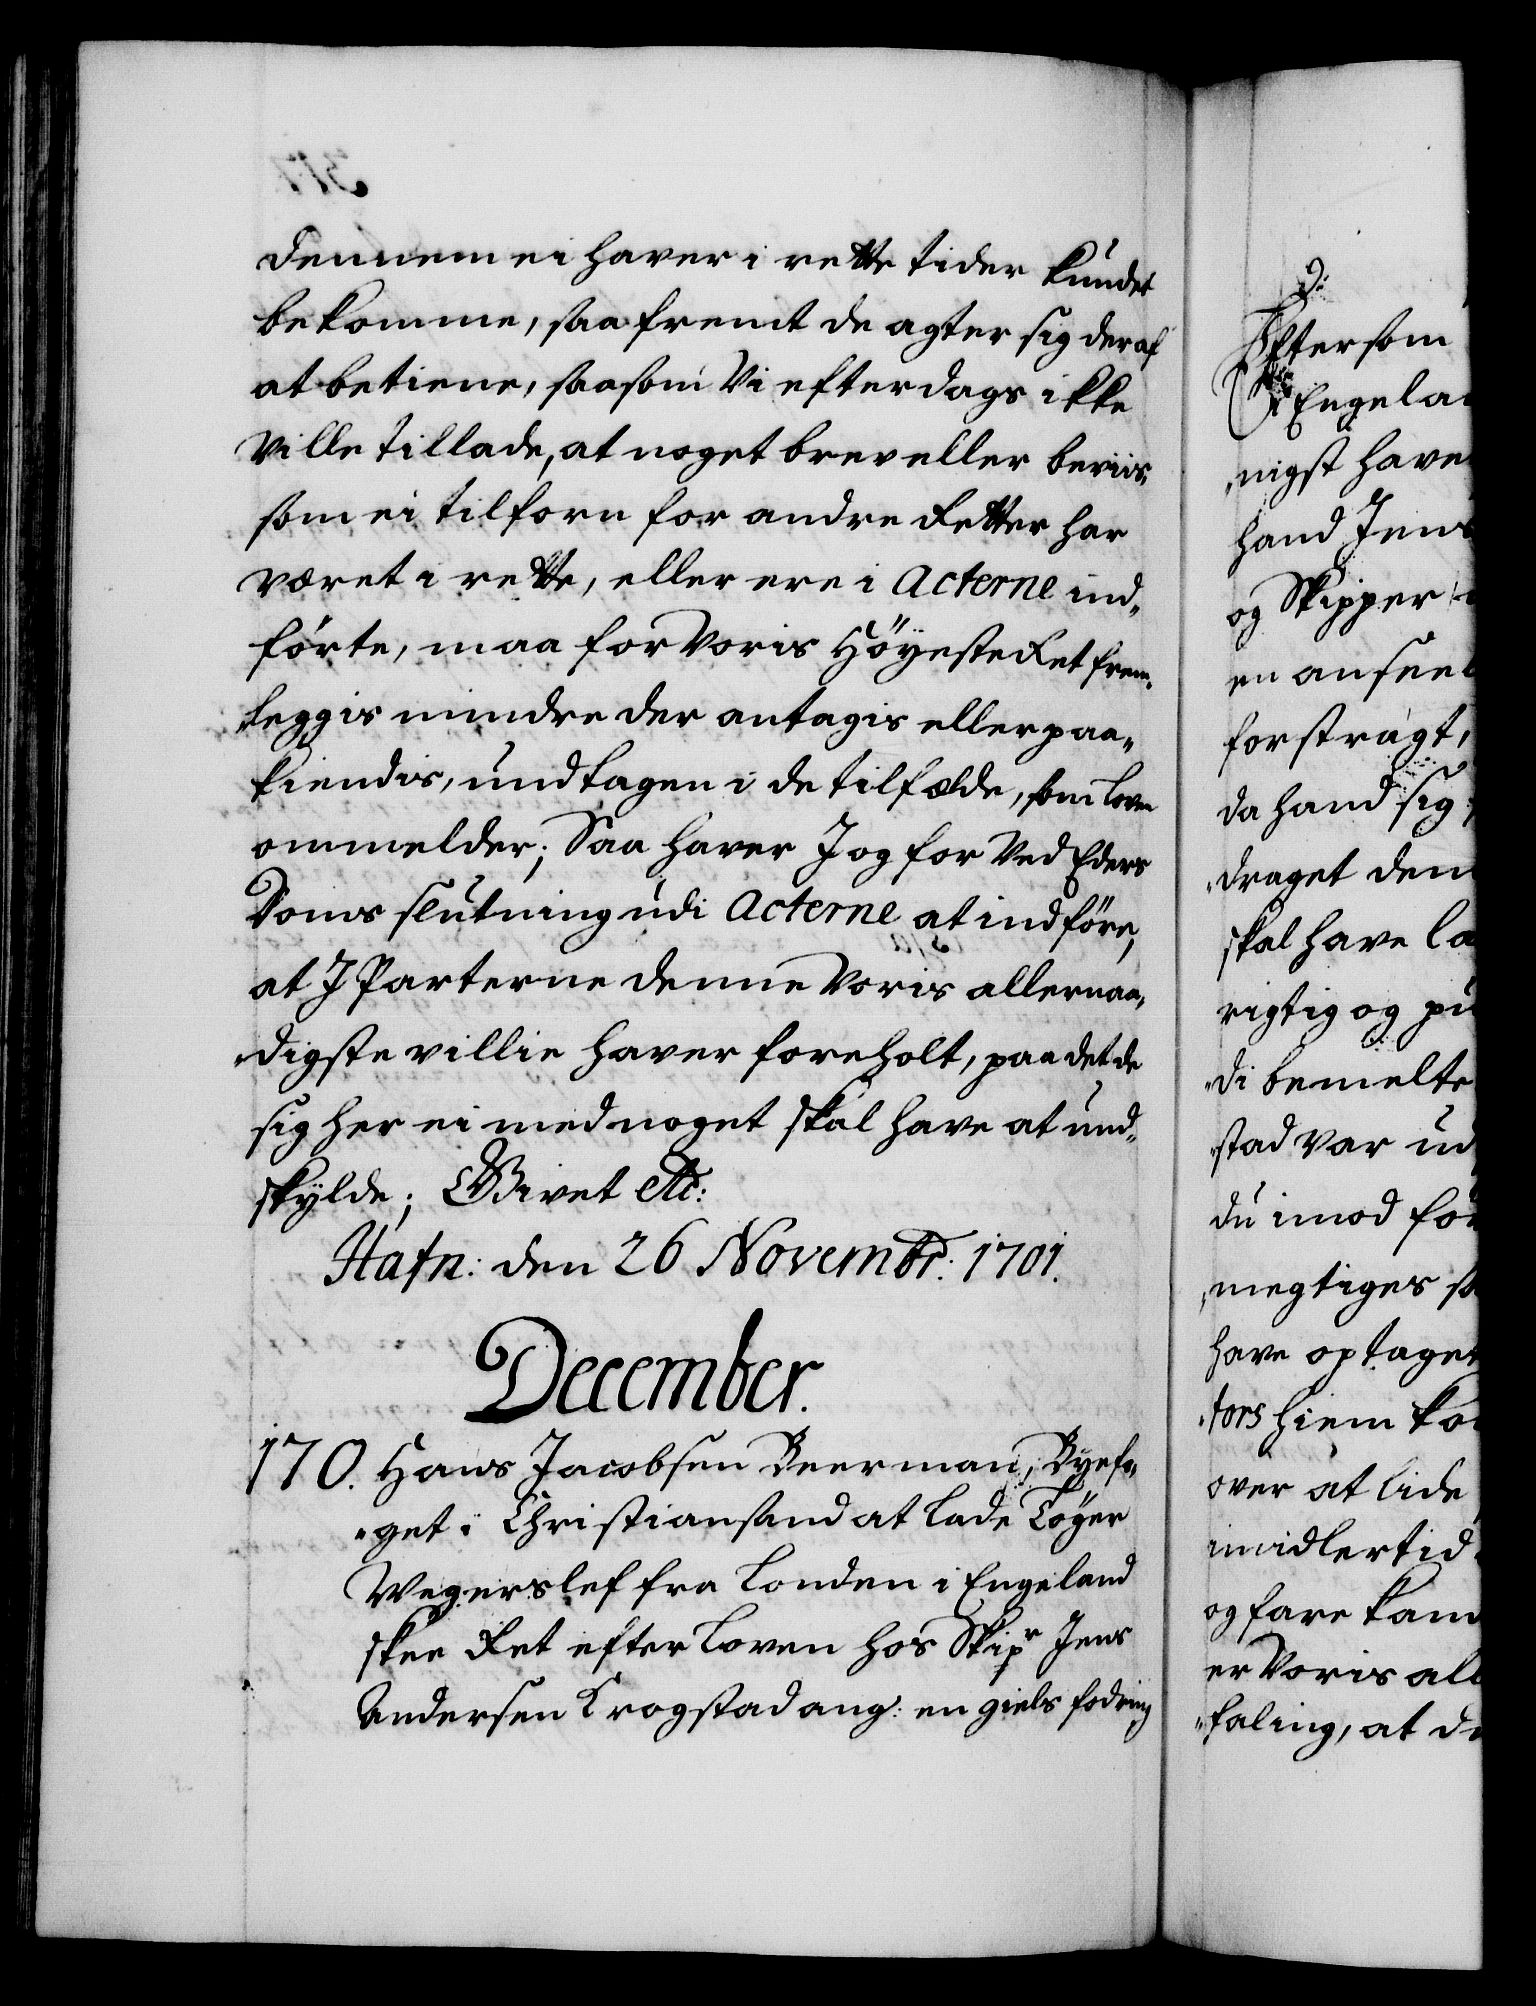 dennem ei haver i rette tider kundet
bekomme, saafremt de agter sig deraf
at betiene, saasom Vi efterdags ikke
Ville tillade, at noget brev eller beviis,
som ei tilforn for andre Retter har
været i rette, eller ere i Acterne ind„
förte, maa for Voris Höÿeste Ret frem„
„leggis mindre der antagis eller paa„
kiendis, undtagen i de tilfælde, som Loven
ommelder; Saa haver I og for Ved Eders
Doms slutning udi Acterne at indföre,
at I Parterne denne Voris allernaa„
„digste villie haver foreholt, paa det de
sig her ei med noget skal have at und„
skÿlde; Givet etc:
Hafn: den 26 Novembr: 1701.
December.
170. Hans Jacobsen Beerman, Byefo„
„get i Christiansand at lade Töger
Wegerslef fra Londen i Engeland
skee Ret efter Loven hos Skipr Jens
Andersen Krogstad ang: en gields fodring
Eftersom
i Engelan
„nigst have
hand Jens
og Skipper
en anseel
forstragt,
da hand sig
„draget dem
skal have la
rigtig og pu
„di bemelte
„stad var ud
du imod for
„megtiges sa
have optaget
„tors hiem ko
over at lide
imidlertid
og fare kand
er Voris all
„faling, at de